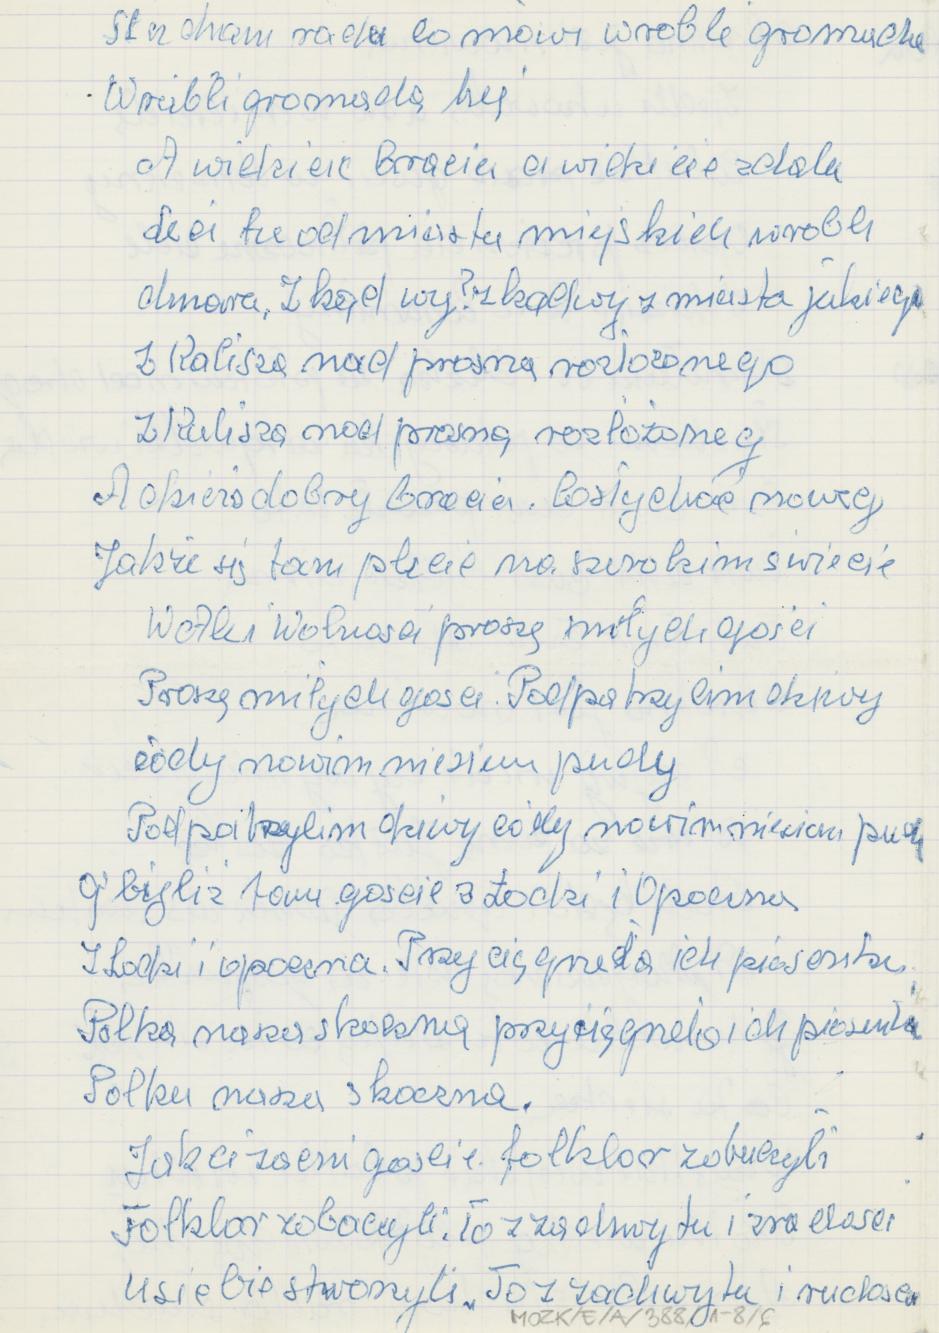 Słucham rada co mówi wróbli gromada
Wróbli gromadą hej
A widzicie bracia a widzicie zdala
Leci tu od miasta miejskich wróbli
chmara, Zkąd wy? zkąd wy z miasta jakiego
Z Kalisza nad prosną rozłożonego
Z Kalisza nad prosną rozłożoneg
A dzieńdobry bracia. Cosłychać noweg
Jakże się tam plecie na szerokim świecie
Wólki Wolnosci proszę miłych gości
Proszę miłych gosci. Podpatrzylim dziwy
códy nowim miesiem
Podpatrzylim dziwy códy nowim miesiem
tam goscie z Łodzi i Opoczna
Z Łodzi i opoczna. Przyciągneła ich piosenka
Polka nasza skoczna przyciągneła ich piosenka
Polka nasza skoczna.
Jak ci zacni goscie folklor zobaczyli
Folklor zobaczyli. To z zachwytu i zradosci
usiebie stworzyli. To z zachwytu i radosci
MOZK/E/A/388/1-8/6